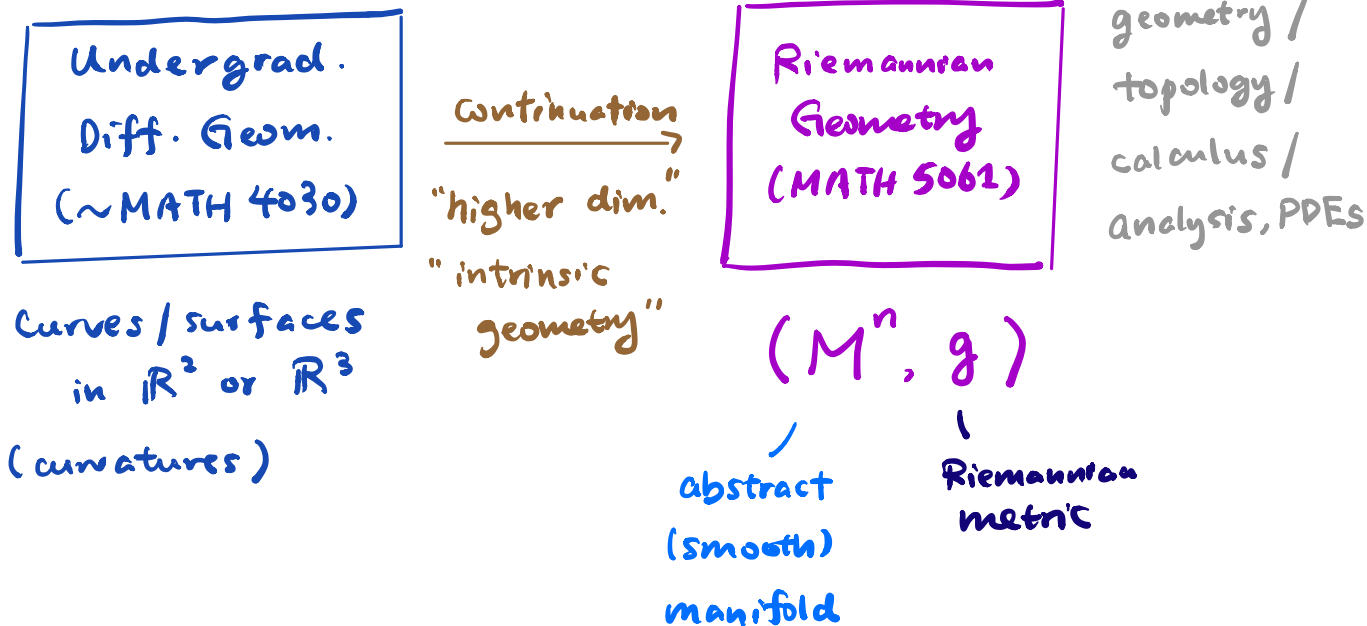 Undergrad.
Diff. Geom.
(~MATH 4030)
Curves / surfaces
in ℝ² or ℝ³
(curvatures)
continuation
"higher dim."
"intrinsic
geometry"
Riemannian
Geometry
(MATH 5061)
(Mⁿ, g)
abstract
(smooth)
manifold
Riemannian
metric
geometry /
topology /
calculus /
analysis, PDEs